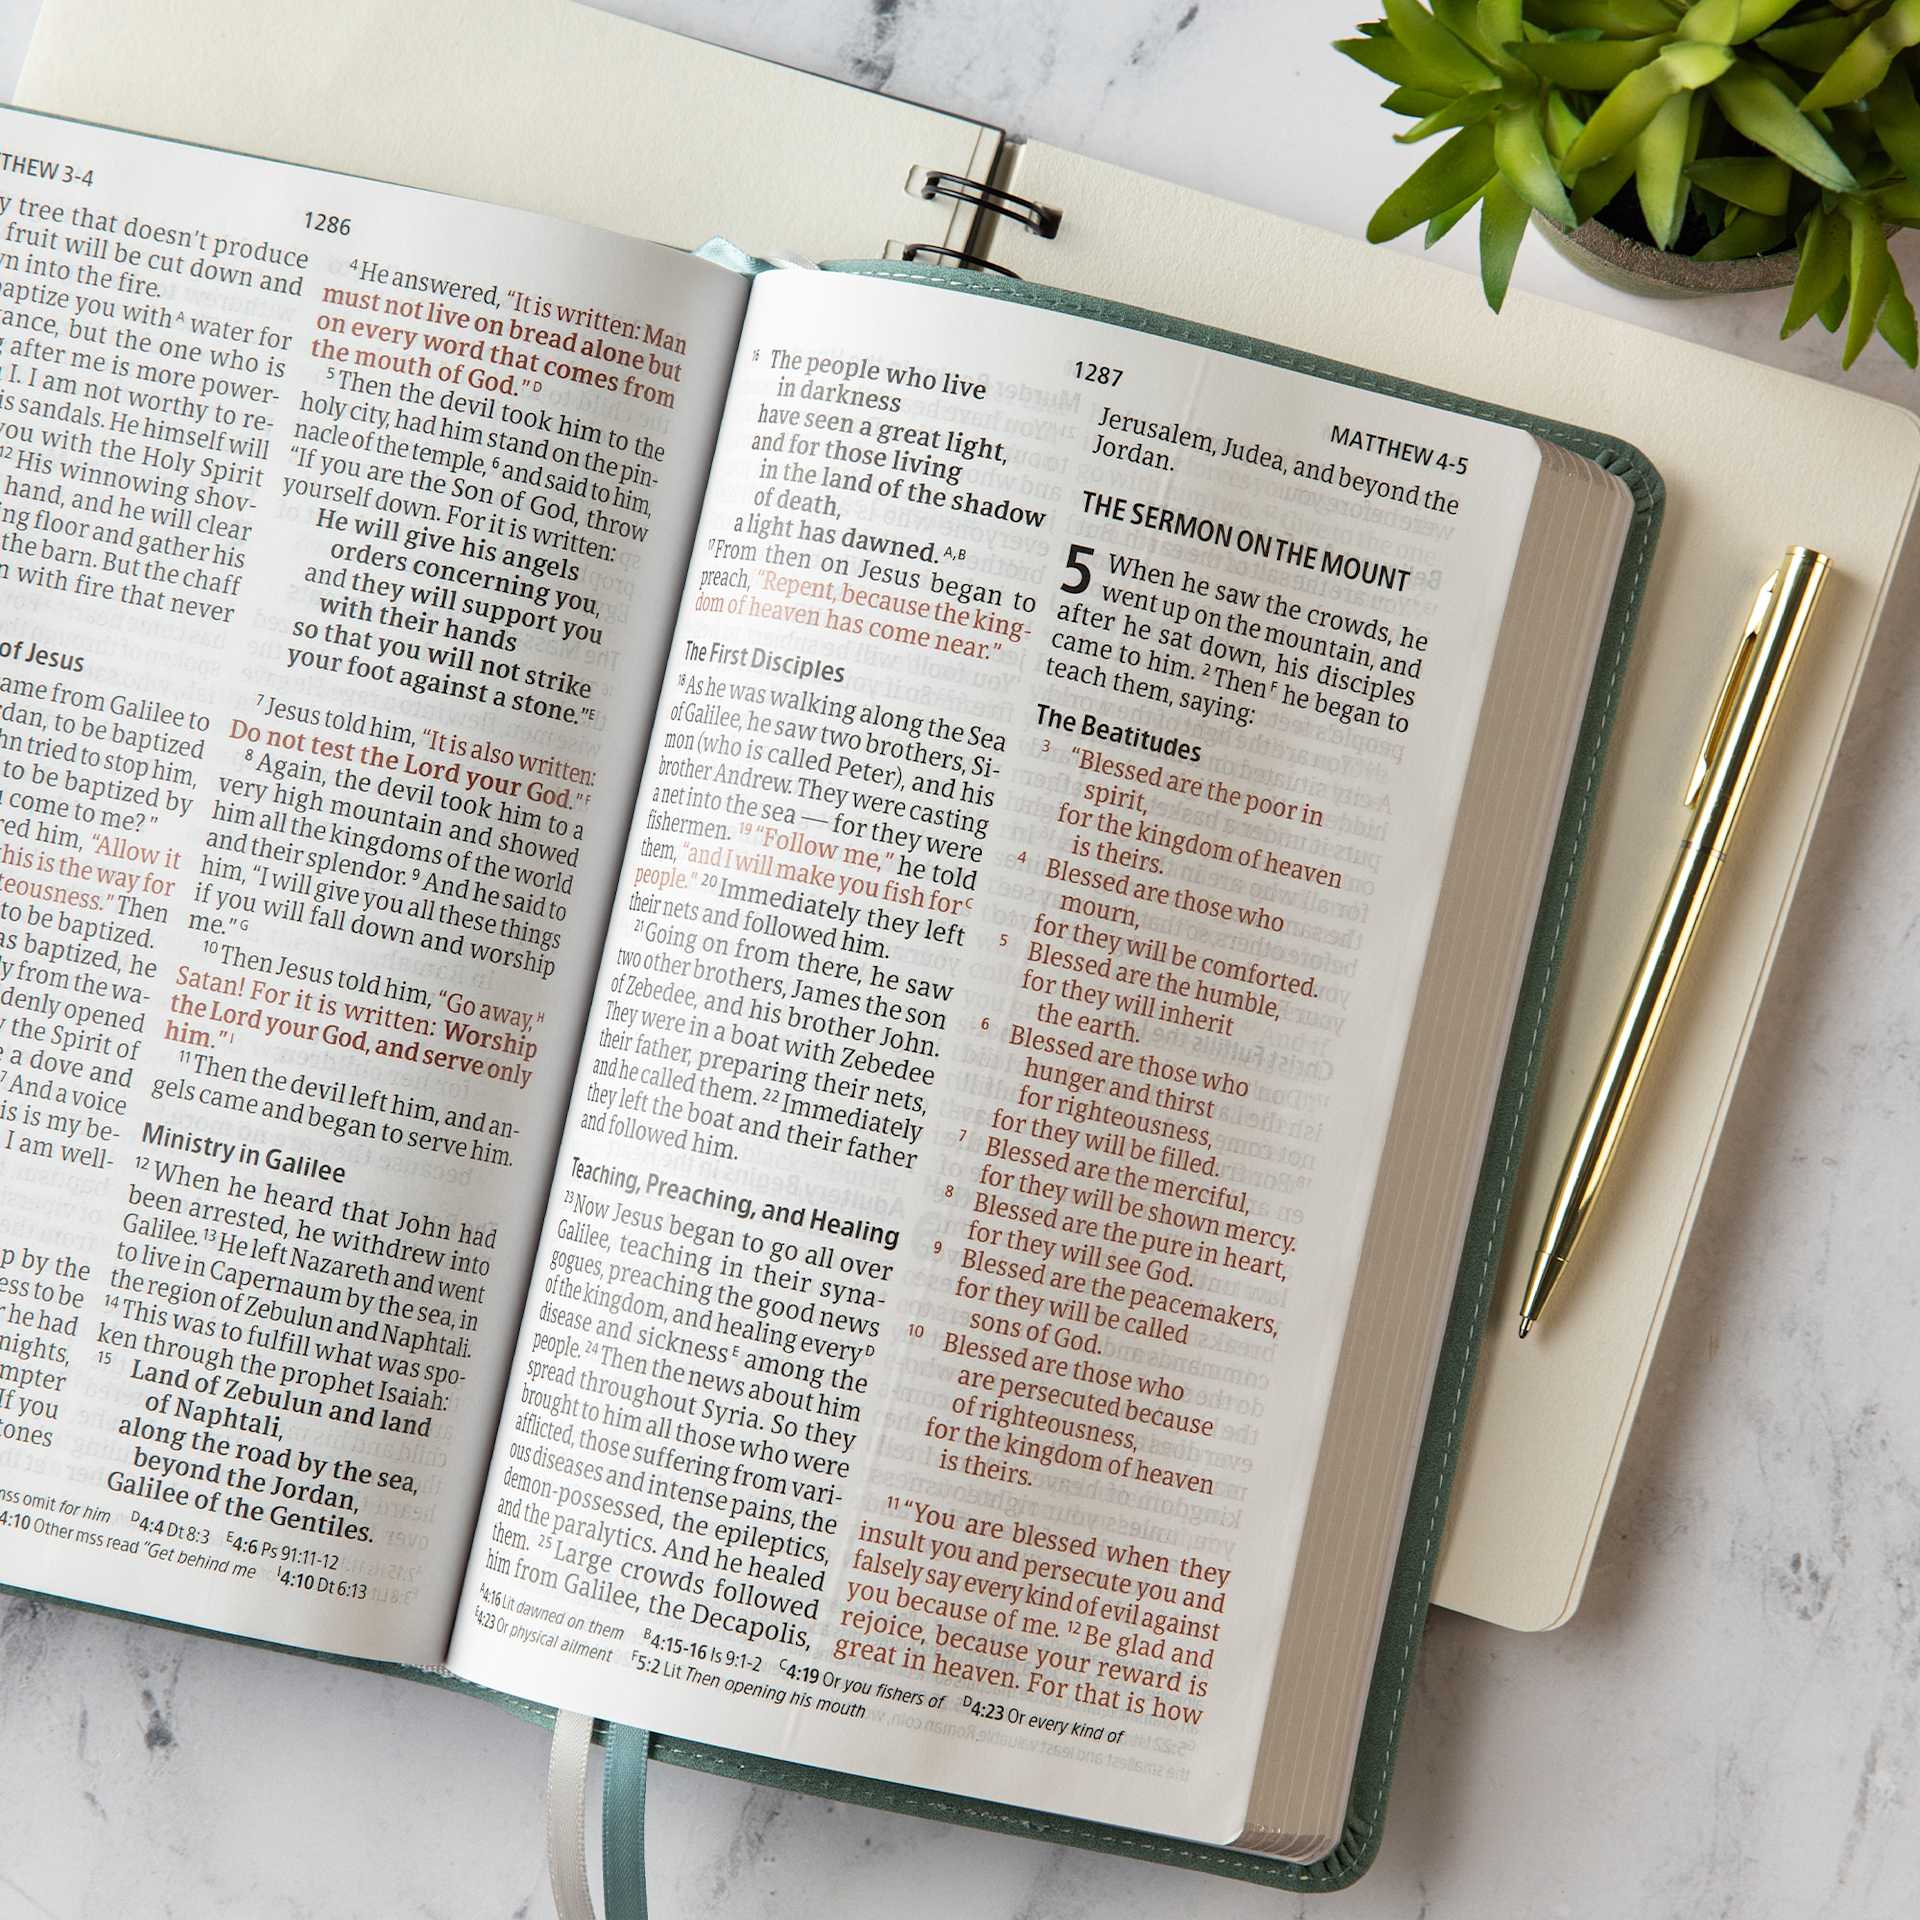 THEW 3-4
1286
y tree that doesn't produce
fruit will be cut down and
n into the fire.
aptize you with A water for
ance, but the one who is
after me is more power-
I. I am not worthy to re-
is sandals. He himself will
you with the Holy Spirit
12 His winnowing shov-
hand, and he will clear
ing floor and gather his
the barn. But the chaff
n with fire that never
of Jesus
ame from Galilee to
dan, to be baptized
hn tried to stop him,
to be baptized by
come to me?"
red him, "Allow it
this is the way for
teousness." Then
to be baptized.
as baptized, he
ly from the wa-
denly opened
the Spirit of
e a dove and
7 And a voice
is is my be-
I am well-
p by the
ess to be
he had
nights,
mpter
If you
tones
4 He answered, "It is written: Man
must not live on bread alone but
on every word that comes from
the mouth of God." D
5 Then the devil took him to the
holy city, had him stand on the pin-
nacle of the temple, 6 and said to him,
"If you are the Son of God, throw
yourself down. For it is written:
He will give his angels
orders concerning you,
and they will support you
with their hands
so that you will not strike
your foot against a stone." E
7 Jesus told him, "It is also written:
Do not test the Lord your God." F
8 Again, the devil took him to a
very high mountain and showed
him all the kingdoms of the world
and their splendor. 9 And he said to
him, "I will give you all these things
if you will fall down and worship
me." G
10 Then Jesus told him, "Go away, H
Satan! For it is written: Worship
the Lord your God, and serve only
him." I
11 Then the devil left him, and an-
gels came and began to serve him.
Ministry in Galilee
12 When he heard that John had
been arrested, he withdrew into
Galilee. 13 He left Nazareth and went
to live in Capernaum by the sea, in
the region of Zebulun and Naphtali.
14 This was to fulfill what was spo-
ken through the prophet Isaiah:
15 Land of Zebulun and land
of Naphtali,
along the road by the sea,
beyond the Jordan,
Galilee of the Gentiles.
mss omit for him D4:4 Dt 8:3 E4:6 Ps 91:11-12
4:10 Other mss read "Get behind me I4:10 Dt 6:13
1287
MATTHEW 4-5
16 The people who live
in darkness
have seen a great light,
and for those living
in the land of the shadow
of death,
a light has dawned. A,B
17 From then on Jesus began to
preach, "Repent, because the king-
dom of heaven has come near."
The First Disciples
18 As he was walking along the Sea
of Galilee, he saw two brothers, Si-
mon (who is called Peter), and his
brother Andrew. They were casting
a net into the sea — for they were
fishermen. 19 "Follow me," he told
them, "and I will make you fish for C
people." 20 Immediately they left
their nets and followed him.
21 Going on from there, he saw
two other brothers, James the son
of Zebedee, and his brother John.
They were in a boat with Zebedee
their father, preparing their nets,
and he called them. 22 Immediately
they left the boat and their father
and followed him.
Teaching, Preaching, and Healing
23 Now Jesus began to go all over
Galilee, teaching in their syna-
gogues, preaching the good news
of the kingdom, and healing every D
disease and sickness E among the
people. 24 Then the news about him
spread throughout Syria. So they
brought to him all those who were
afflicted, those suffering from vari-
ous diseases and intense pains, the
demon-possessed, the epileptics,
and the paralytics. And he healed
them. 25 Large crowds followed
him from Galilee, the Decapolis,
Jerusalem, Judea, and beyond the
Jordan.
THE SERMON ON THE MOUNT
5 When he saw the crowds, he
went up on the mountain, and
after he sat down, his disciples
came to him. 2 Then F he began to
teach them, saying:
The Beatitudes
3 "Blessed are the poor in
spirit,
for the kingdom of heaven
is theirs.
4 Blessed are those who
mourn,
for they will be comforted.
5 Blessed are the humble,
for they will inherit
the earth.
6 Blessed are those who
hunger and thirst
for righteousness,
for they will be filled.
7 Blessed are the merciful,
for they will be shown mercy.
8 Blessed are the pure in heart,
for they will see God.
9 Blessed are the peacemakers,
for they will be called
sons of God.
10 Blessed are those who
are persecuted because
of righteousness,
for the kingdom of heaven
is theirs.
11 "You are blessed when they
insult you and persecute you and
falsely say every kind of evil against
you because of me. 12 Be glad and
rejoice, because your reward is
great in heaven. For that is how
A4:16 Lit dawned on them B4:15-16 Is 9:1-2 C4:19 Or you fishers of D4:23 Or every kind of
E4:23 Or physical ailment F5:2 Lit Then opening his mouth